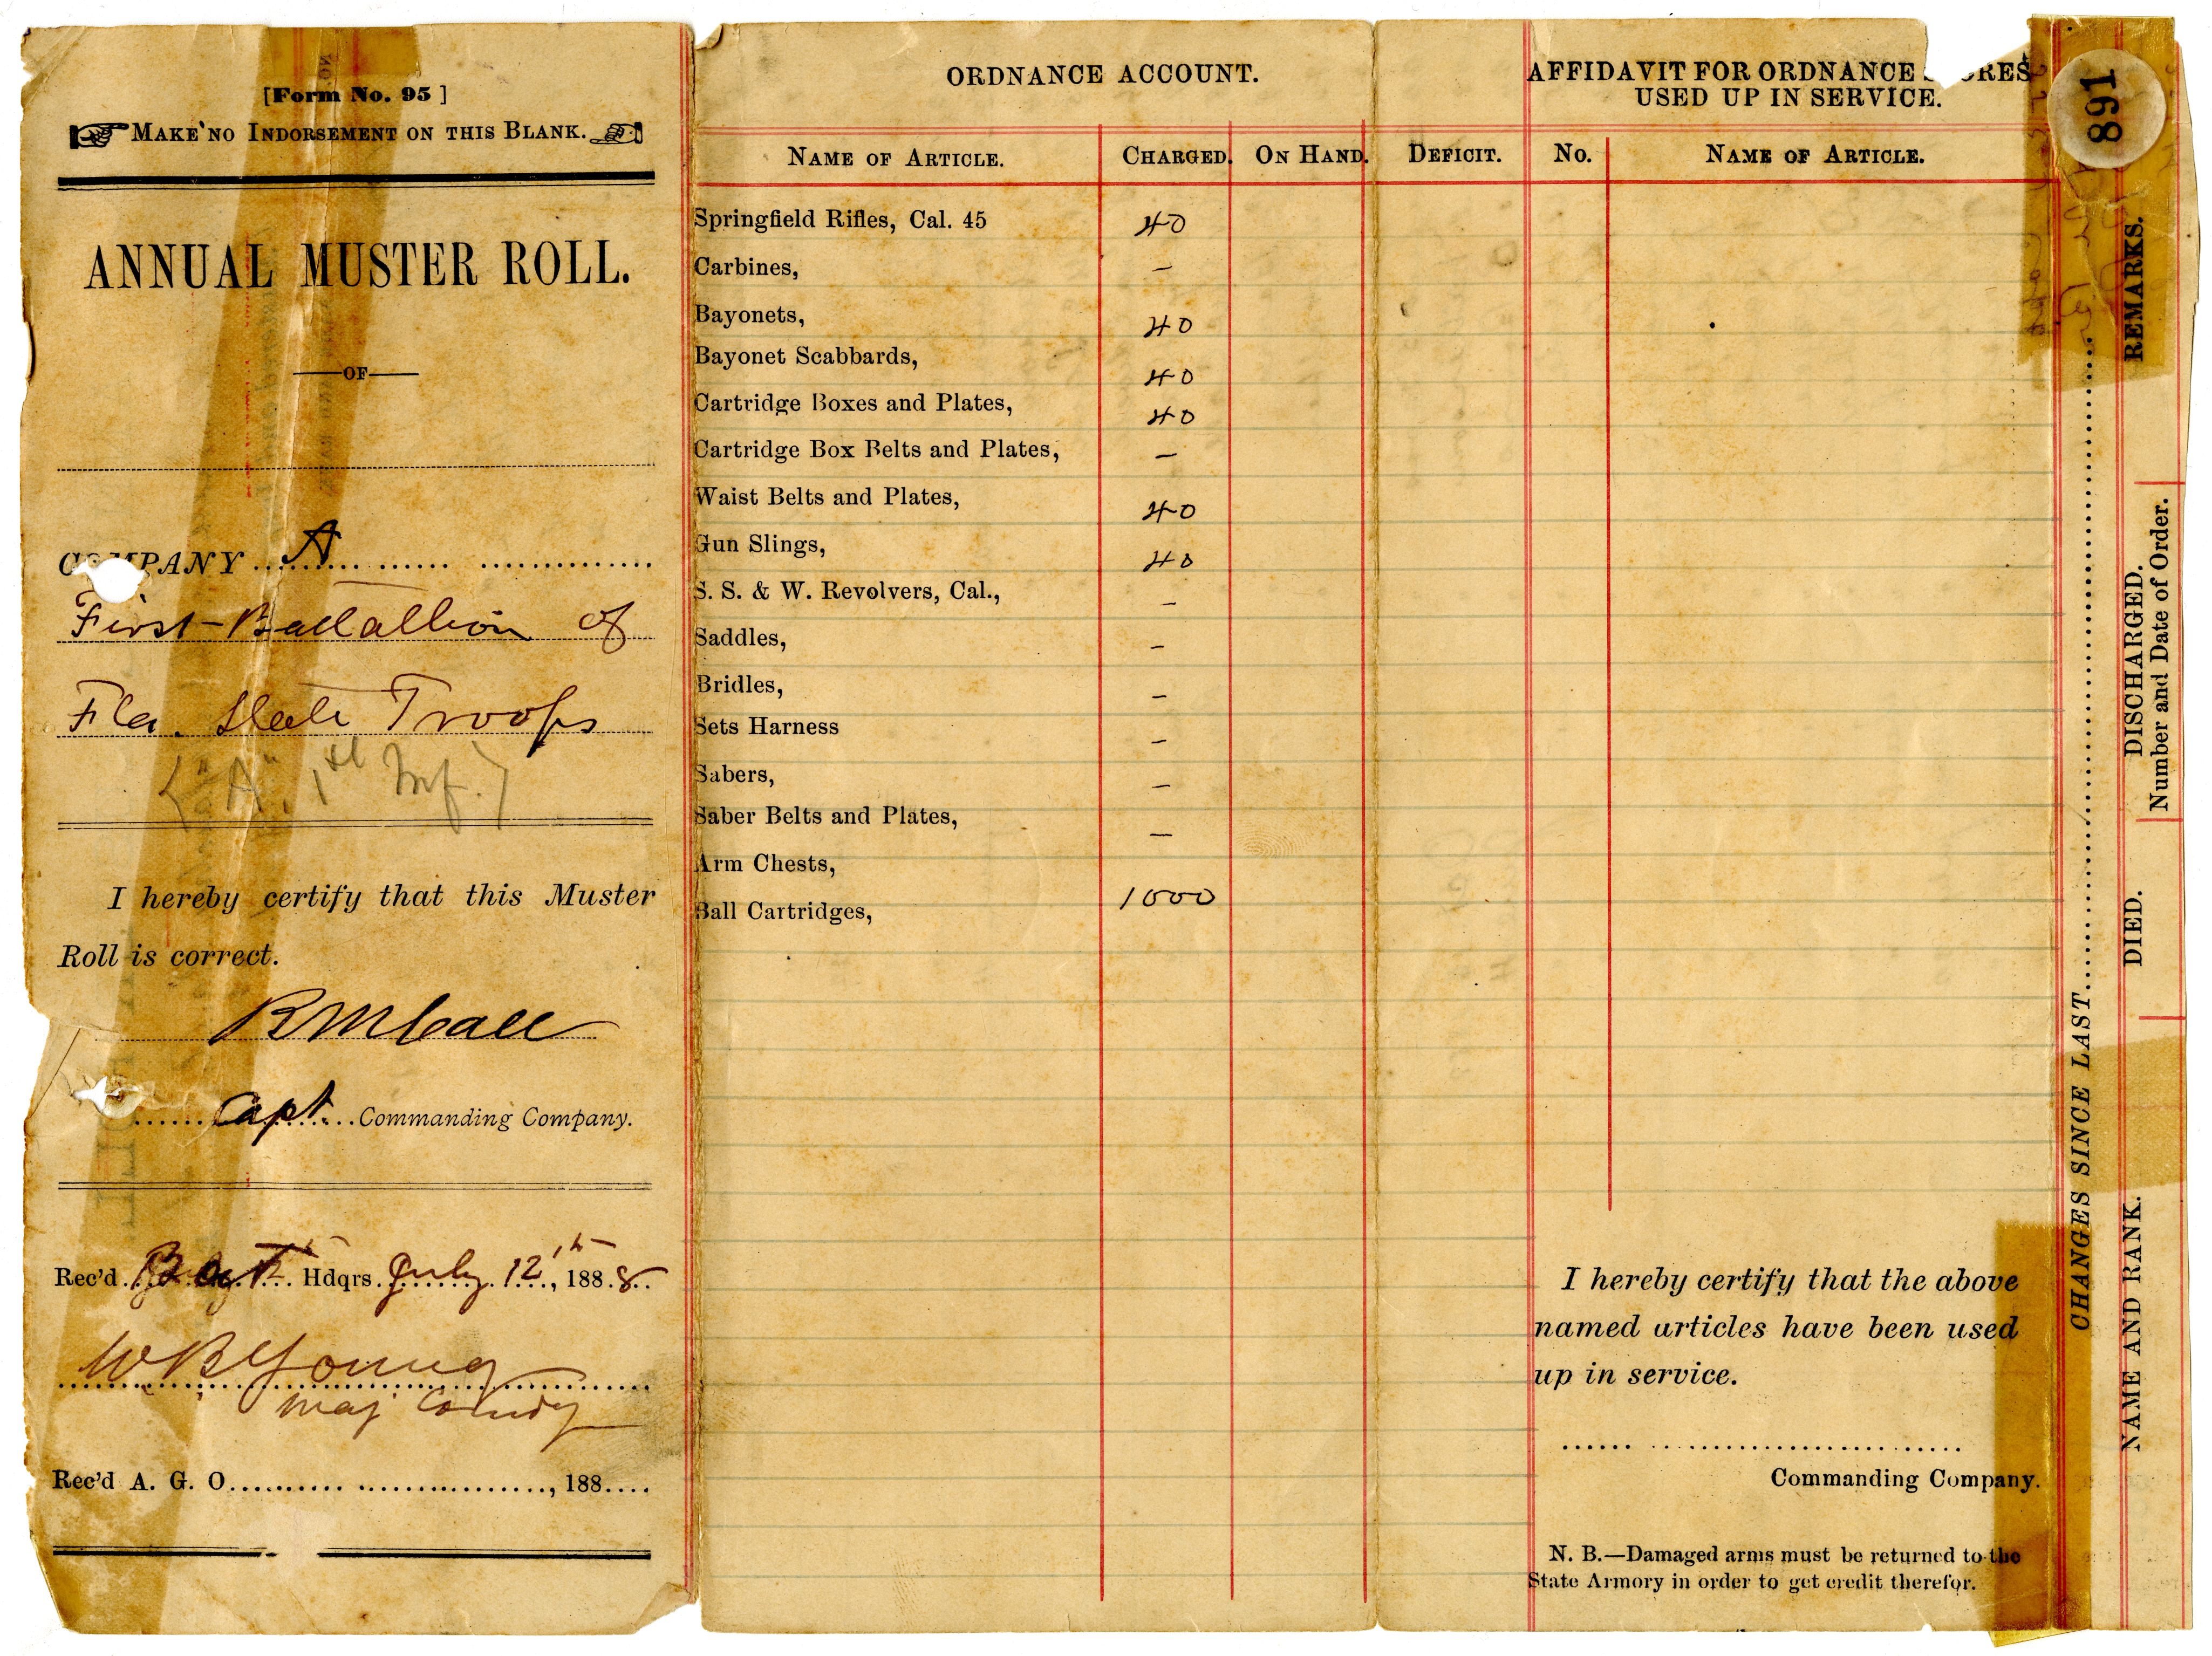 [Form No. 95]
MAKE NO INDORSEMENT ON THIS BLANK.
ANNUAL MUSTER ROLL.
—OF—
COMPANY A
First Battallion of
Fla. State Troops
("A", 1st Inf.)
I hereby certify that this Muster
Roll is correct.
R M Call
Capt. Commanding Company.
Rec'd Hdqrs. July 12th, 1888
W B Young
Maj Comdg
Rec'd A. G. O. , 188
ORDNANCE ACCOUNT.
NAME OF ARTICLE. CHARGED. ON HAND. DEFICIT.
Springfield Rifles, Cal. 45 40
Carbines, —
Bayonets, 40
Bayonet Scabbards, 40
Cartridge Boxes and Plates, 40
Cartridge Box Belts and Plates, —
Waist Belts and Plates, 40
Gun Slings, 40
S. S. & W. Revolvers, Cal., —
Saddles, —
Bridles, —
Sets Harness —
Sabers, —
Saber Belts and Plates, —
Arm Chests,
Ball Cartridges, 1000
AFFIDAVIT FOR ORDNANCE
USED UP IN SERVICE.
No. NAME OF ARTICLE.
I hereby certify that the above
named articles have been used
up in service.
Commanding Company.
N. B.—Damaged arms must be returned to the
State Armory in order to get credit therefor.
891
CHANGES SINCE LAST
NAME AND RANK. DIED. DISCHARGED. REMARKS.
Number and Date of Order.